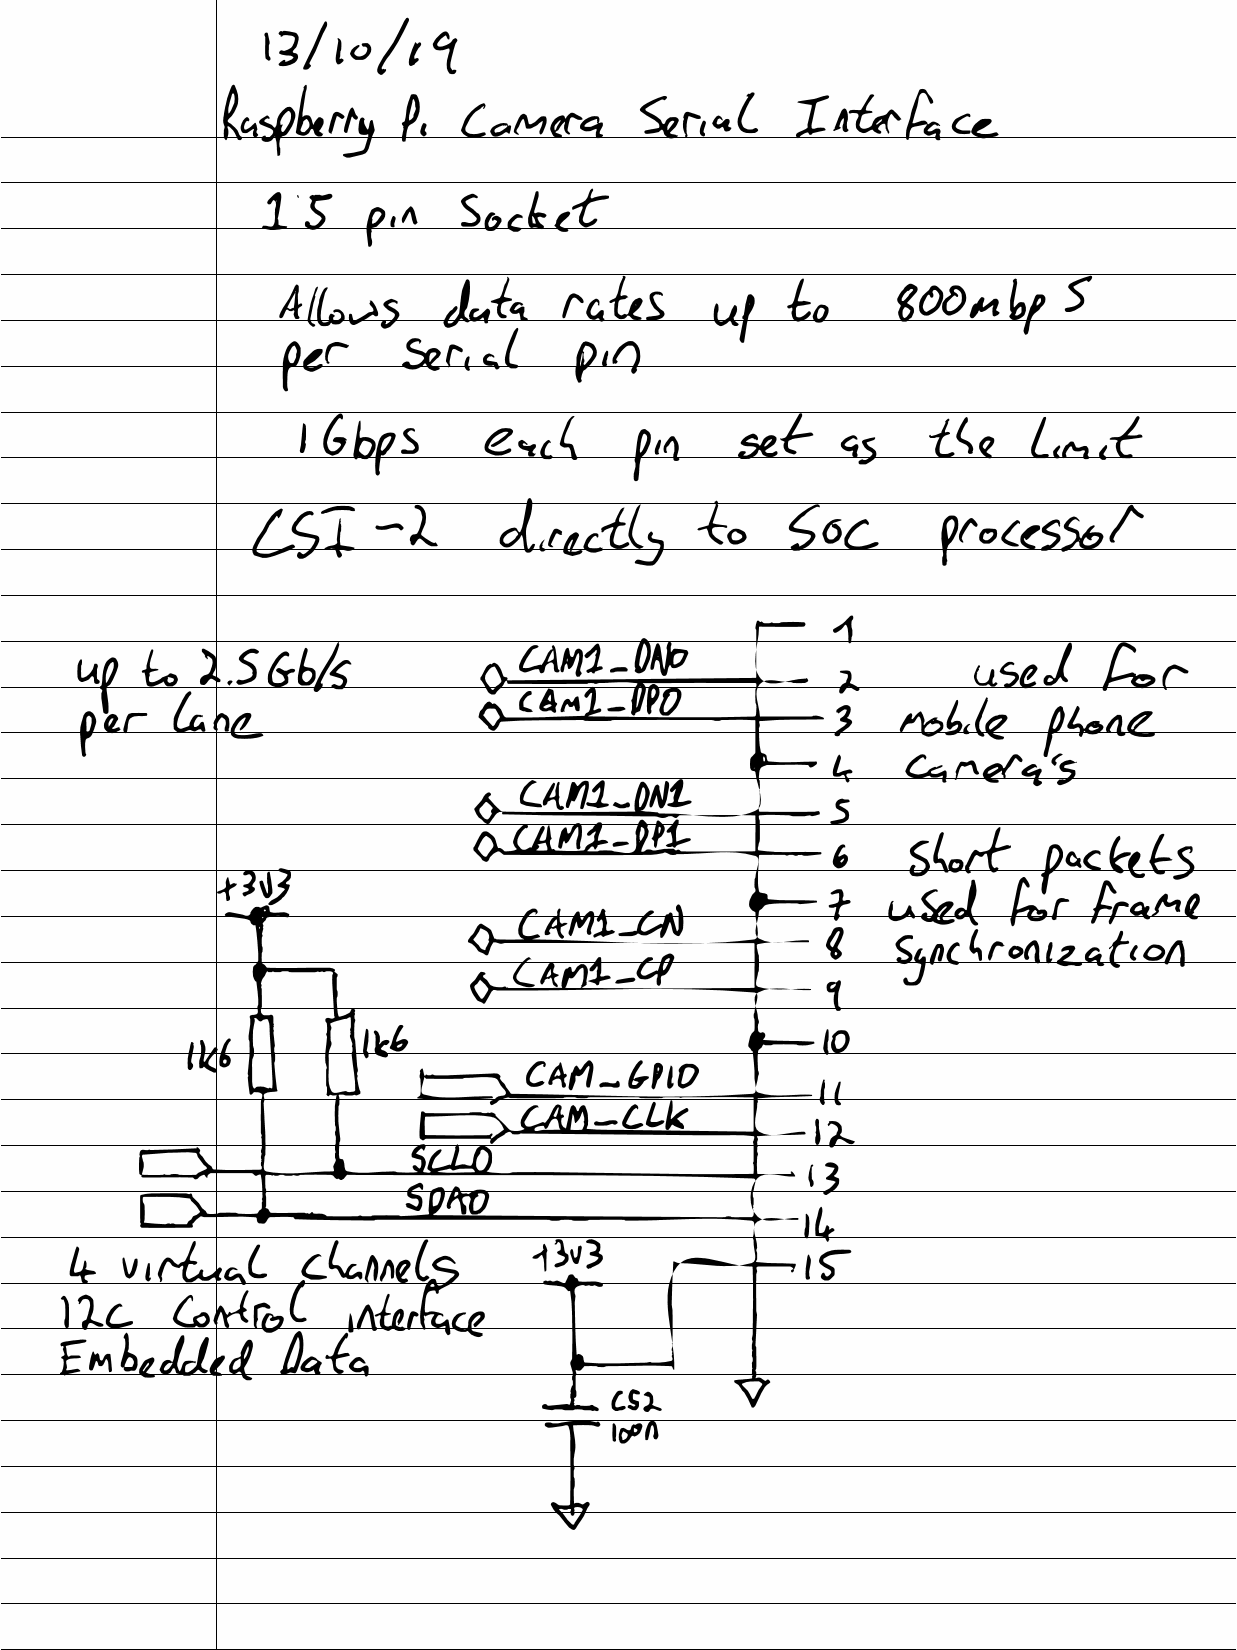 13/10/19
Raspberry Pi Camera Serial Interface
15 pin Socket
Allows data rates up to 800mbps
per serial pin
1Gbps each pin set as the limit
CSI-2 directly to SOC processor
up to 2.5Gb/s
per lane
CAM1_DN0
CAM1_DP0
CAM1_DN1
CAM1_DP1
CAM1_CN
CAM1_CP
CAM_GPIO
CAM_CLK
SCL0
SDA0
1
2
3
4
5
6
7
8
9
10
11
12
13
14
15
used for
mobile phone
camera's
short packets
used for frame
synchronization
+3v3
1k6
1k6
4 virtual channels
I2C control interface
Embedded Data
+3v3
C52
100n